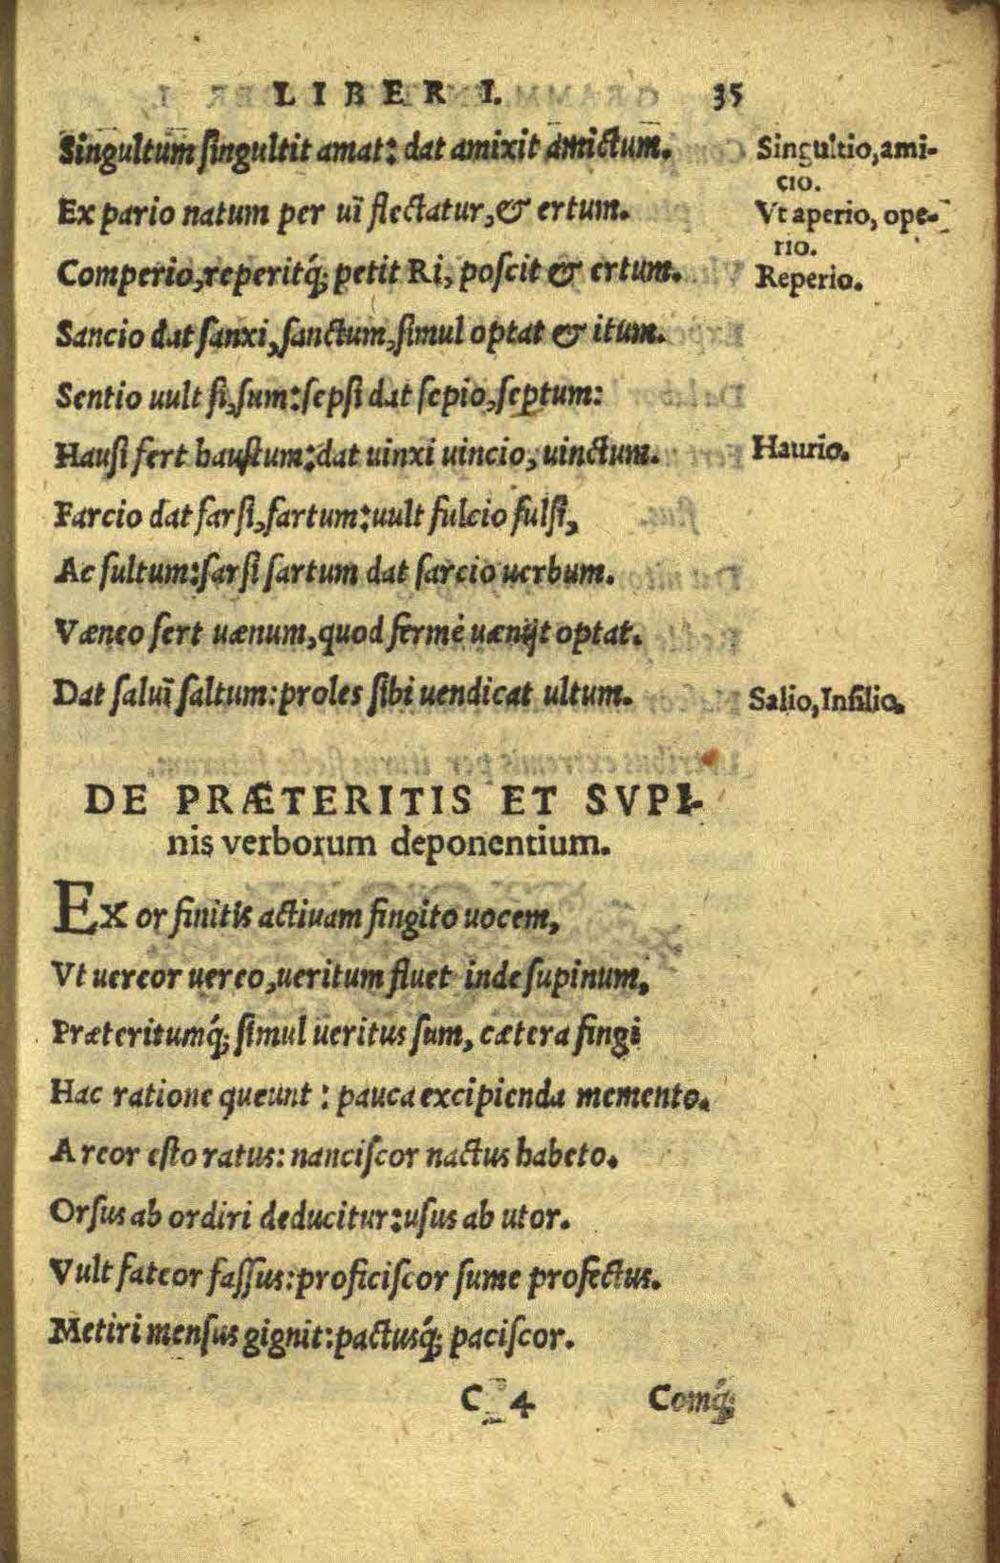 LIBER I. 35
Singultum ſingultit amat: dat amixit amictum.
Singultio, ami-
cio.
Ex pario natum per uī flectatur, & ertum.
Vt aperio, ope-
rio.
Comperio, reperitq́; petit Ri, poſcit & ertum.
Reperio.
Sancio dat ſanxi, ſanctum, ſimul optat & itum.
Sentio uult ſi, ſum: ſepſi dat ſepio, ſeptum:
Hauſi fert hauſtum: dat uinxi uincio, uinctum.
Haurio.
Farcio dat farſi, fartum: uult fulcio fulſi,
Ac fultum: ſarſi ſartum dat ſarcio uerbum.
Væneo fert uænum, quod fermè uænijt optat.
Dat ſaluī ſaltum: proles ſibi uendicat ultum.
Salio, Inſilio.
DE PRÆTERITIS ET SVPI-
nis verborum deponentium.
Ex or finitis actiuam fingito uocem,
Vt uereor uereo, ueritum fluet inde ſupinum,
Præteritumq́; ſimul ueritus ſum, cætera fingi
Hac ratione queunt: pauca excipienda memento.
A reor eſto ratus: nanciſcor nactus habeto.
Orſus ab ordiri deducitur: uſus ab utor.
Vult fateor faſſus: proficiſcor ſume profectus.
Metiri menſus gignit: pactusq́; paciſcor.
C 4 Comq́;